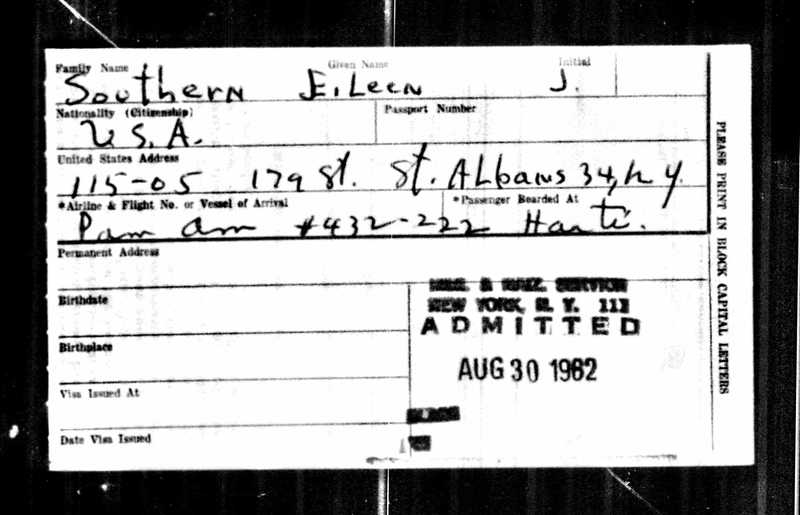 Family Name Given Name Initial
Southern Eileen J.
Nationality (Citizenship) Passport Number
U.S.A.
United States Address
115-05 179 St. St. Albans 34, N.Y.
*Airline & Flight No. or Vessel of Arrival *Passenger Boarded At
Pam Am #432-222 Haiti.
Permanent Address
Birthdate
IMM. & NATZ. SERVICE
NEW YORK, N. Y. 111
ADMITTED
Birthplace
AUG 30 1962
Visa Issued At
Date Visa Issued
PLEASE PRINT IN BLOCK CAPITAL LETTERS